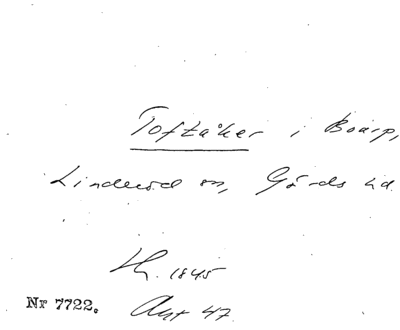 Toftåker i Boarp,
Linderöd sn, Gärds hd.
Lh. 1845
Nr 7722. Akt 47